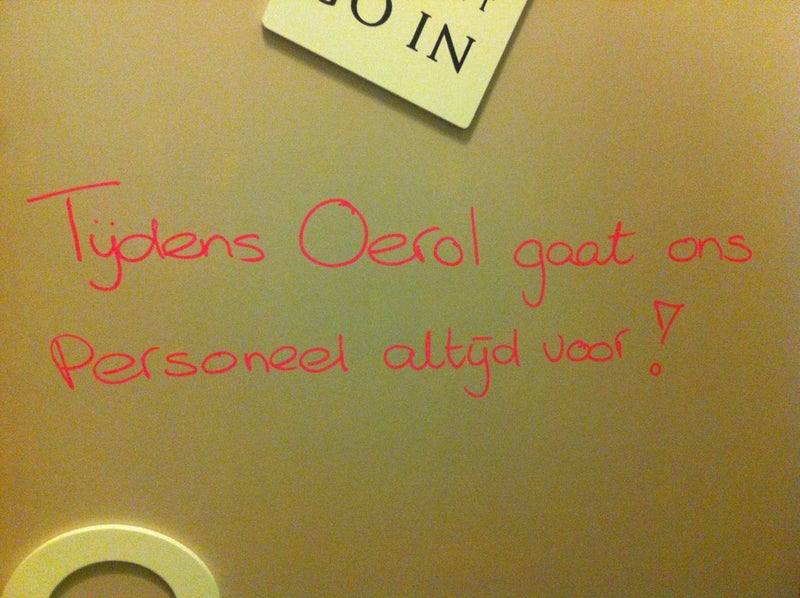 GO IN
Tijdens Oerol gaat ons
Personeel altijd voor!